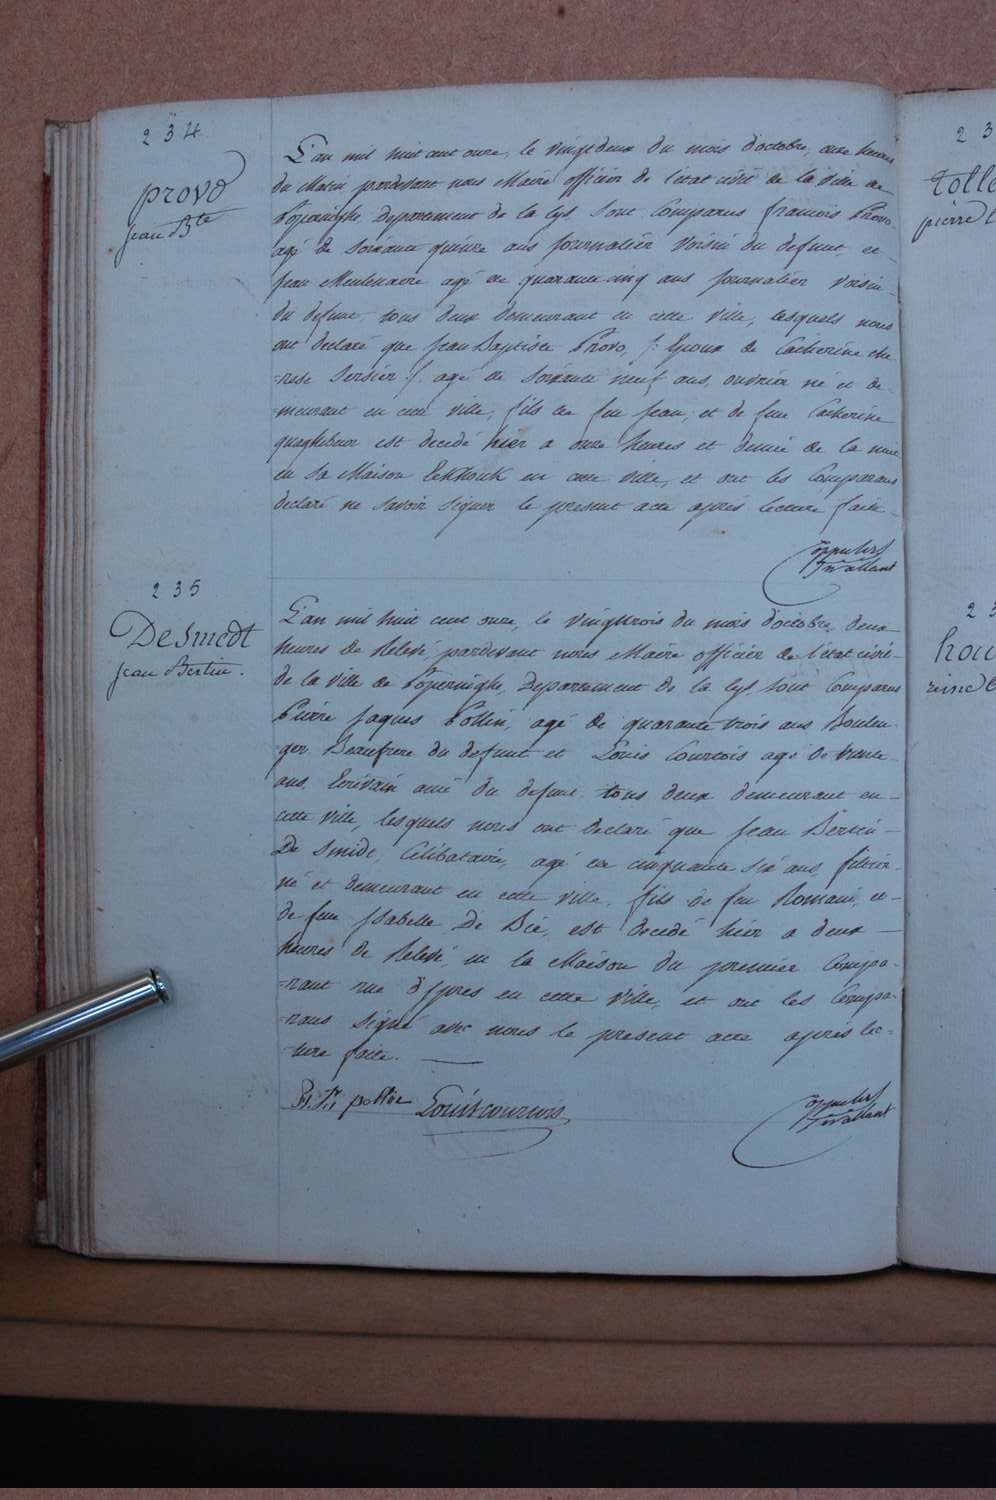 234
provo
jean Bte
L'an mil huit cent onze, le vingt deux du mois d'octobre, onze heures
du Matin pardevant nous Maire officier de l'etat civil de la ville de
Poperinghe Departement de la Lys sont Comparus francois Provo
agé de soixante quinze ans journalier voisin du defunt, et
jean Meulenaere agé de quarante cinq ans journalier voisin
du defunt tous deux demeurant en cette ville, lesquels nous
ont declaré que jean Baptiste Provo, /: Epoux de Catherine the
=rese Sersier :/ agé de soixante neuf ans, ouvrier né et de-
=meurant en cette ville, fils de feu jean, et de feue Catherine
quaghebeur est decedé hier a onze heures et demie de la nuit
en sa Maison Eekhouk en cette ville, et ont les Comparans
declaré ne savoir signer le present acte après lecture faite
235
De Smedt
jean Bertin.
L'an mil huit cent onze, le vingt trois du mois d'octobre, deux
heures de Relevé, pardevant nous Maire officier de l'etat civil
de la ville de Poperinghe, Departement de la Lys sont Comparus
Pierre jaques Pollin, agé de quarante trois ans Boulen
ger Beaufrere du defunt et Louis Courtois agé de trente
ans Ecrivain ami du defunt tous deux demeurant en
cette ville, lesquels nous ont declaré que jean Bertin
De Smidt, Celibataire, agé de cinquante six ans,
né et demeurant en cette ville, fils de feu Romain, et
de feue jsabelle De Bie, est decedé hier a deux
heures de Relevé, en la Maison du premier Compa-
=rant rue d'Ypres en cette ville, et ont les Compa-
=rans signé avec nous le present acte après lec-
=ture faite.
pollin Louis courtois
tolle
pierre
23